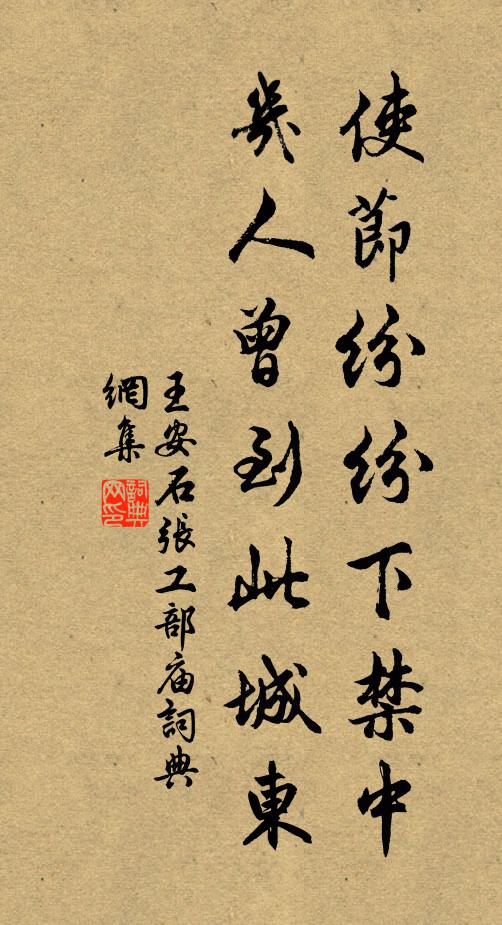 使節紛紛下禁中
幾人曾到此城東
王安石張工部庙詞典
網集
詞典
网印